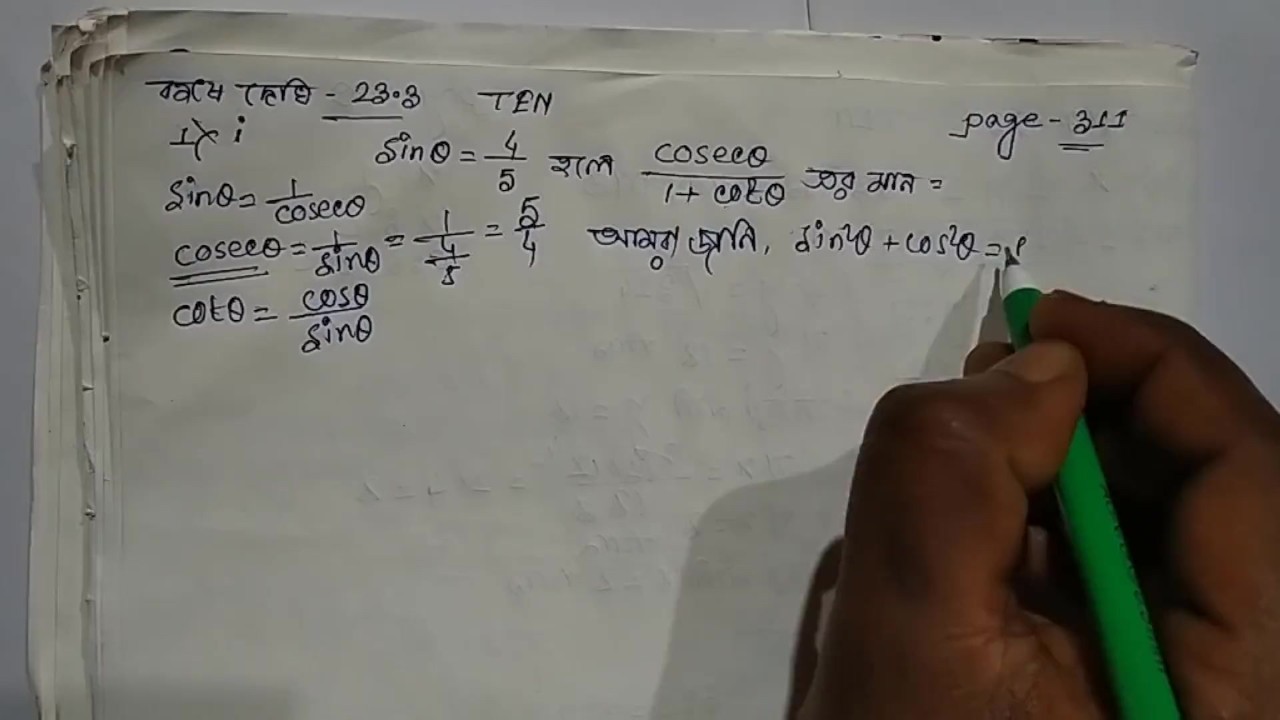 কষে দেখি - 23.3 TEN
page - 311
1) i sinθ = 4/5 হলে cosecθ/(1 + cotθ) এর মান =
sinθ = 1/cosecθ
cosecθ = 1/sinθ = 1/(4/5) = 5/4 আমরা জানি, sin²θ + cos²θ =
cotθ = cosθ/sinθ